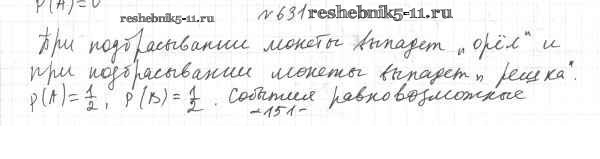 P(A)=0
№631
reshebnik5-11.ru reshebnik5-11.ru
При подбрасывании монеты выпадет „орёл" и
при подбрасывании монеты выпадет „решка".
P(A)=1/2, P(B)=1/2. События равновозможные
-151-